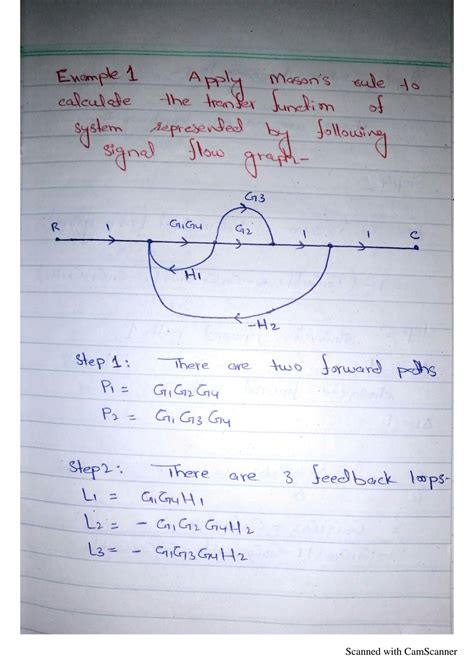 Example 1 Apply Mason's rule to
calculate the transfer function of
system represented by following
signal flow graph-
G3
R 1 G1G4 G2 1 1 C
H1
-H2
Step 1: There are two forward paths
P1 = G1G2G4
P2 = G1G3G4
Step2: There are 3 feedback loops-
L1 = G1G4H1
L2 = - G1G2G4H2
L3 = - G1G3G4H2
Scanned with CamScanner